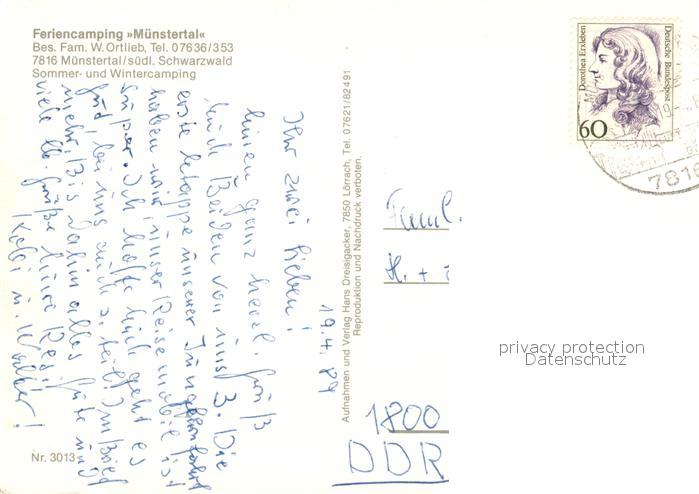 Feriencamping »Münstertal«
Bes. Fam. W. Ortlieb, Tel. 07636/353
7816 Münstertal/südl. Schwarzwald
Sommer- und Wintercamping
19.4.89
Ihr zwei Lieben!
Einen ganz herzl. Gruß
Euch Beiden von uns 3. Die
erste Etappe unserer Jungfernfahrt
haben wir, unser Reisemobil ist
super. Ich hoffe Euch geht es
gut, bei uns auch z. teil! Im Brief
mehr. Bis dahin alles Gute und
viele lb. Grüße Eure Resi,
u. Walter!
Nr. 3013
Aufnahmen und Verlag Hans Dreisigacker, 7850 Lörrach, Tel. 07621/82491
Reproduktion und Nachdruck verboten.
Dorothea Erxleben
Deutsche Bundespost
60
7816
Famil.
H. +
1800
DDR
privacy protection
Datenschutz